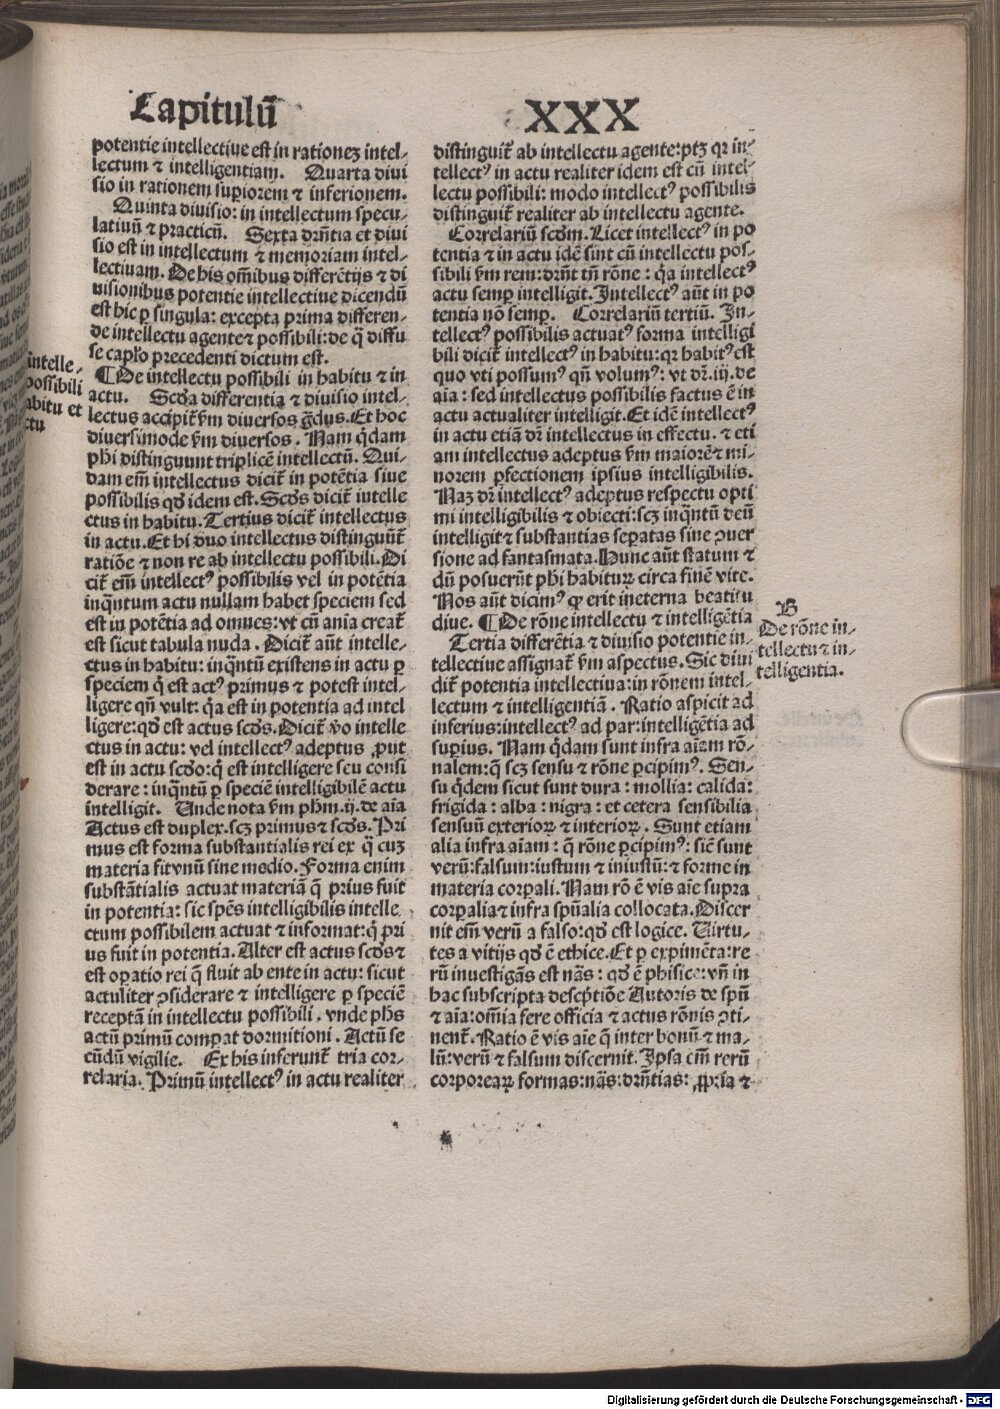 Capitulū XXX
potentie intellectiue est in rationeꝫ intel-
lectum ⁊ intelligentiam. Quarta diui
sio in rationem suꝑiorem ⁊ inferionem.
Quinta diuisio: in intellectum specu-
latiuū ⁊ practicū. Sexta drn̄tia et diui
sio est in intellectum ⁊ memoriam intel-
lectiuam. De his om̄ibus differētijs ⁊ di
uisionibus potentie intellectiue dicendū
est hic ꝑ singula: excepta prima differen-
de intellectu agente⁊ possibili: de q̄ diffu
se capło precedenti dictum est.
¶De intellectu possibili in habitu ⁊ in
actu. Scda differentia ⁊ diuisio intel-
lectus accipit̄ ẜm diuersos g̈dus. Et hoc
diuersimode ẜm diuersos. Nam q̇dam
phi distinguunt triplicē intellectū. Qui-
dam em̄ intellectus dicit̄ in potētia siue
possibilis qd̓ idem est. Scd̓s dicit̄ intelle
ctus in habitu. Tertius dicit̄ intellectus
in actu. Et hi duo intellectus distinguūt̄
ratiōe ⁊ non re ab intellectu possibili. Di
cit̄ em̄ intellectꝰ possibilis vel in potētia
inq̈ntum actu nullam habet speciem sed
est in potētia ad omnes: vt cū ania creat̄
est sicut tabula nuda. Dicit̄ aūt intelle-
ctus in habitu: inq̈ntū existens in actu ꝑ
speciem q̇ est actꝰ primus ⁊ potest intel-
ligere qn̄ vult: q̇a est in potentia ad intel
ligere: qd̓ est actus scd̓s. Dicit̄ v̊o intelle
ctus in actu: vel intellectꝰ adeptus ꝓut
est in actu scd̓o: q̇ est intelligere seu consi
derare: inq̈ntū ꝑ speciē intelligibilē actu
intelligit. Unde nota ẜm phm. ij. de aīa
Actus est duplex. scꝫ primus⁊ scd̓s. Pri
mus est forma substantialis rei ex q̈ cuꝫ
materia fit vnū sine medio. Forma enim
substātialis actuat materiā q̄ prius fuit
in potentia: sic spēs intelligibilis intelle
ctum possibilem actuat ⁊ informat: q̇ pri
us fuit in potentia. Alter est actus scd̓s⁊
est oꝑatio rei q̄ fluit ab ente in actu: sicut
actuliter ꝯsiderare ⁊ intelligere ꝑ speciē
receptā in intellectu possibili. vnde phs
actū primū compat dormitioni. Actū se
cūdū vigilie. Ex his inferunt̄ tria cor-
relaria. Primū intellectꝰ in actu realiter
distinguit̄ ab intellectu agente: ptꝫ qꝛ in-
tellectꝰ in actu realiter idem est cū intel-
lectu possibili: modo intellectꝰ possibilis
distinguit̄ realiter ab intellectu agente.
Correlariū scdm. Licet intellectꝰ in po
tentia ⁊ in actu idē sint cū intellectu pos-
sibili ẜm rem: drn̄t tn̄ rōne: q̇a intellectꝰ
actu semꝑ intelligit. Intellectꝰ aūt in po
tentia nō semꝑ. Correlariū tertiū. In-
tellectꝰ possibilis actuatꝰ forma intelligi
bili dicit̄ intellectꝰ in habitu: qꝛ habitꝰ est
quo vti possumꝰ qn̄ volumꝰ: vt dꝛ. iij. de
aīa: sed intellectus possibilis factus ē in
actu actualiter intelligit. Et idē intellectꝰ
in actu etiā dꝛ intellectus in effectu. ⁊ eti
am intellectus adeptus ẜm maiorē⁊ mi-
norem ꝑfectionem ipsius intelligibilis.
Naꝫ dꝛ intellectꝰ adeptus respectu opti
mi intelligibilis ⁊ obiecti: scꝫ inq̈ntū deū
intelligit⁊ substantias seꝑatas sine ꝯuer
sione ad fantasmata. Hunc aūt statum ⁊
dū posuerūt phi habituꝝ circa finē vite.
Nos aūt dicimꝰ ꝙ erit in eterna beatitu
diue. ¶De rōne intellectu ⁊ intelligētia
Tertia differētia ⁊ diuisio potentie in-
tellectiue assignat̄ ẜm aspectus. Sic diui
dit̄ potentia intellectiua: in rōnem intel-
lectum ⁊ intelligentiā. Ratio aspicit ad
inferius: intellectꝰ ad par: intelligētia ad
suꝑius. Nam q̇dam sunt infra aīam rō-
nalem: q̄ scꝫ sensu ⁊ rōne ꝑcipimꝰ. Sen-
su q̇dem sicut sunt dura: mollia: calida:
frigida: alba: nigra: et cetera sensibilia
sensuū exterioꝝ ⁊ interioꝝ. Sunt etiam
alia infra aīam: q̄ rōne ꝑcipimꝰ: sic̄ sunt
verū: falsum: iustum ⁊ iniustū: ⁊ forme in
materia corꝑali. Nam rō ē vis aīe supra
corꝑalia⁊ infra spūalia collocata. Discer
nit em̄ verū a falso: qd̓ est logice. Virtu-
tes a vitijs qd̓ ē ethice. Et ꝑ exꝑimēta: re
rū inuestigās est nās: qd̓ ē phisice: vn̄ in
hac subscripta descp̄tiōe Autoris de spū
⁊ aīa: om̄ia fere officia ⁊ actus rōnis ꝯti-
nent̄. Ratio ē vis aīe q̄ inter bonū ⁊ ma-
lū: verū ⁊ falsum discernit. Ipsa em̄ rerū
corporeaꝝ formas: nās: drn̄tias: ꝓpria ⁊
intelle-
possibili
abitu et
ctu
B
De rōne in-
tellectu⁊ in-
telligentia.
Digitalisierung gefördert durch die Deutsche Forschungsgemeinschaft - DFG